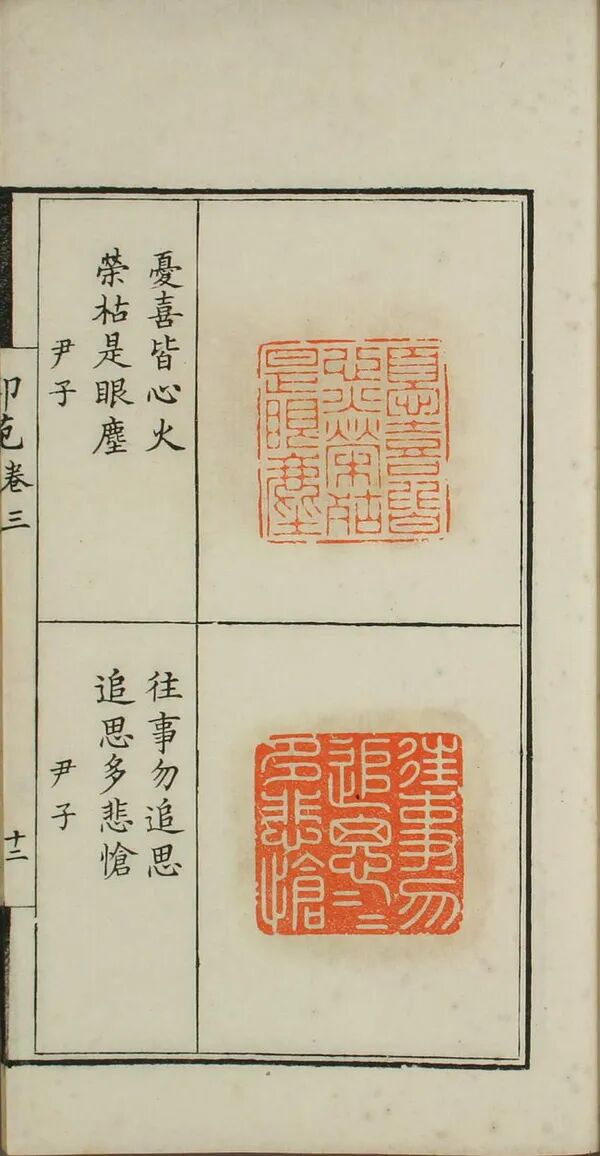 憂喜皆
心火榮枯
是眼塵
憂喜皆心火
榮枯是眼塵
尹子
往事勿
追思二二
多悲愴
往事勿追思
追思多悲愴
尹子
印苑卷三
十二